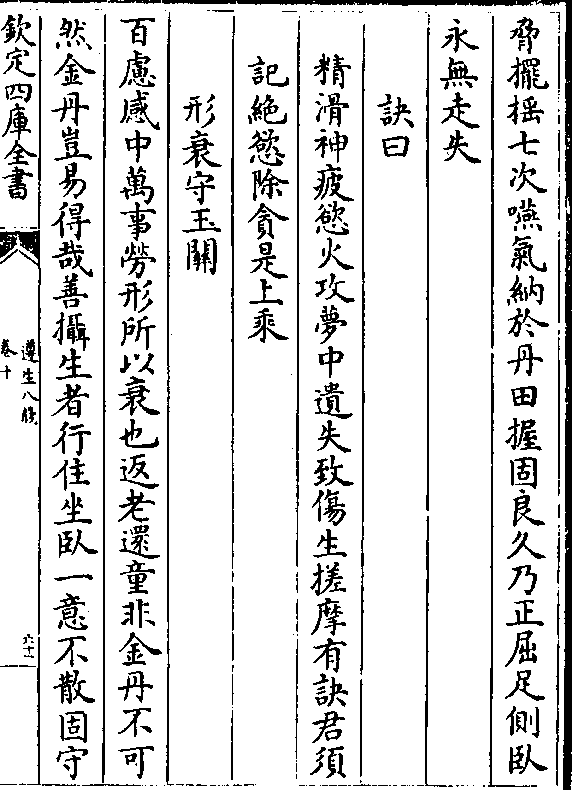 脅擺揺七次嚥氣納於丹田握固良久乃正屈足側臥
永無走失
訣曰
精滑神疲慾火攻夢中遺失致傷生搓摩有訣君須
記絶慾除貪是上乘
形衰守玉關
百慮感中萬事勞形所以衰也返老還童非金丹不可
然金丹豈易得哉善攝生者行住坐臥一意不散固守
欽定四庫全書
遵生八牋
卷十